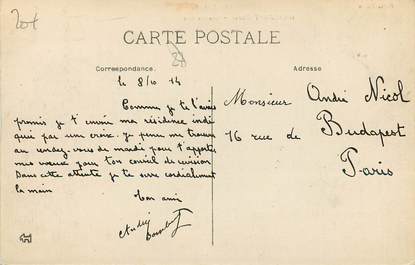 CARTE POSTALE
Correspondance.
Adresse
le 8/6 14
Comme je te l'avais
promis je t'envoie ma résidence indi
qué par une croix. Je pense me trouver
au rendez-vous de mardi pour t'apporter
mes voeux pour ton conseil de révision
Dans cette attente je te serre cordialement
la main
Ton ami
André
Monsieur André Nicol
76 rue de Budapest
Paris